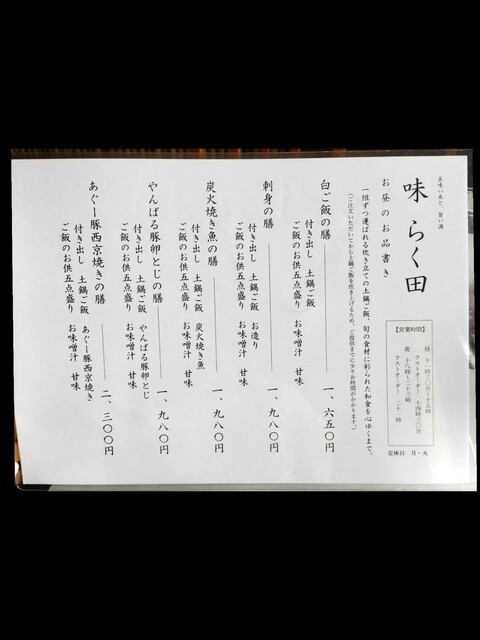 美味い米と、旨い酒
味 らく田
【営業時間】
昼 十一時三〇分~十五時
ラストオーダー 十四時三〇分
夜 十八時~二十三時
ラストオーダー 二十二時
定休日 月・火
お昼のお品書き
一組ずつ運ばれる炊き立ての土鍋ご飯、旬の食材に彩られた和食を心ゆくまで。
(ご注文いただいてから土鍋ご飯を炊き上げるため、ご提供までに少々お時間がかかります。)
白ご飯の膳 一、六五〇円
付き出し 土鍋ご飯
ご飯のお供五点盛り お味噌汁 甘味
刺身の膳 一、九八〇円
付き出し 土鍋ご飯 お造り
ご飯のお供五点盛り お味噌汁 甘味
炭火焼き魚の膳 一、九八〇円
付き出し 土鍋ご飯 炭火焼き魚
ご飯のお供五点盛り お味噌汁 甘味
やんばる豚卵とじの膳 一、九八〇円
付き出し 土鍋ご飯 やんばる豚卵とじ
ご飯のお供五点盛り お味噌汁 甘味
あぐー豚西京焼きの膳 二、三〇〇円
付き出し 土鍋ご飯 あぐー豚西京焼き
ご飯のお供五点盛り お味噌汁 甘味